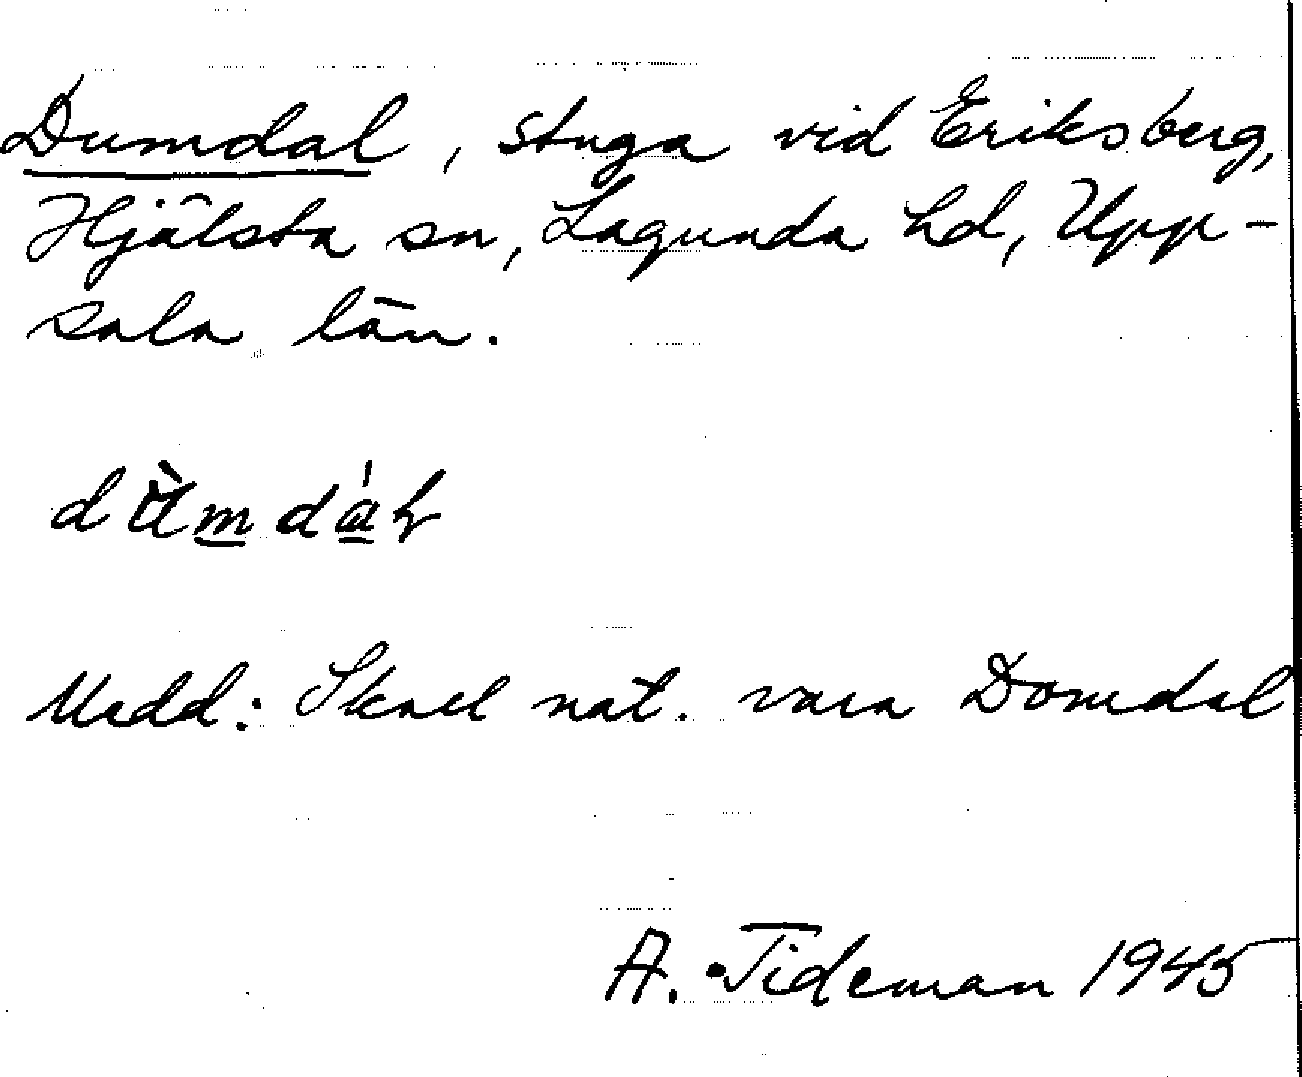 Dumdal, stuga vid Eriksberg,
Hjälsta sn, Lagunda hd, Upp-
sala län.
Medd: Skall nat. vara Domdal
A. Tideman 1945